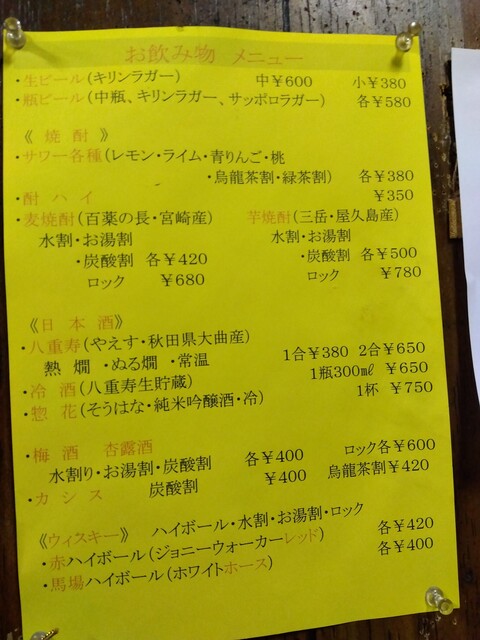 お飲み物 メニュー
・生ビール(キリンラガー) 中￥600 小￥380
・瓶ビール(中瓶、キリンラガー、サッポロラガー) 各￥580
《 焼 酎 》
・サワー各種(レモン・ライム・青りんご・桃
・烏龍茶割・緑茶割) 各￥380
・酎 ハ イ ￥350
・麦焼酎(百薬の長・宮崎産) 芋焼酎(三岳・屋久島産)
水割・お湯割 水割・お湯割
・炭酸割 各￥420 ・炭酸割 各￥500
ロック ￥680 ロック ￥780
《日 本 酒》
・八重寿(やえす・秋田県大曲産)
熱 燗 ・ぬる燗 ・常温 1合￥380 2合￥650
・冷 酒(八重寿生貯蔵) 1瓶300㎖ ￥650
・惣 花(そうはな・純米吟醸酒・冷) 1杯 ￥750
・梅 酒 杏露酒
水割り・お湯割・炭酸割 各￥400 ロック各￥600
・カ シ ス 炭酸割 ￥400 烏龍茶割￥420
《ウィスキー》 ハイボール・水割・お湯割・ロック
・赤ハイボール(ジョニーウォーカーレッド) 各￥420
・馬場ハイボール(ホワイトホース) 各￥400